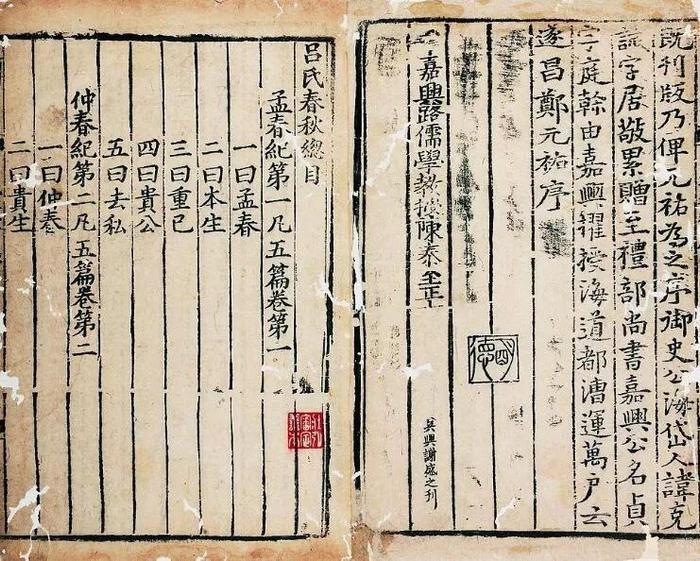 既刊版乃俾元祐為之序御史公海岱人諱克
誠字居敬累贈至禮部尚書嘉興公名貞
字庭榦由嘉興擢授海道都漕運萬户云
遂昌鄭元祐序
嘉興路儒學教授陳泰至正
吴興謝盛之刊
呂氏春秋總目
孟春紀第一凡五篇卷第一
一曰孟春
二曰本生
三曰重己
四曰貴公
五曰去私
仲春紀第二凡五篇卷第二
一曰仲春
二曰貴生